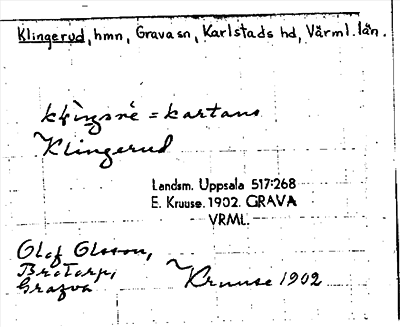 Klingerud, hmn, Grava sn, Karlstads hd, Värml. län.
= kartans
Klingerud
Landsm. Uppsala 517:268
E. Kruuse. 1902. GRAVA
VRML.
Olof Olsson,
Grafva
Kruuse 1902